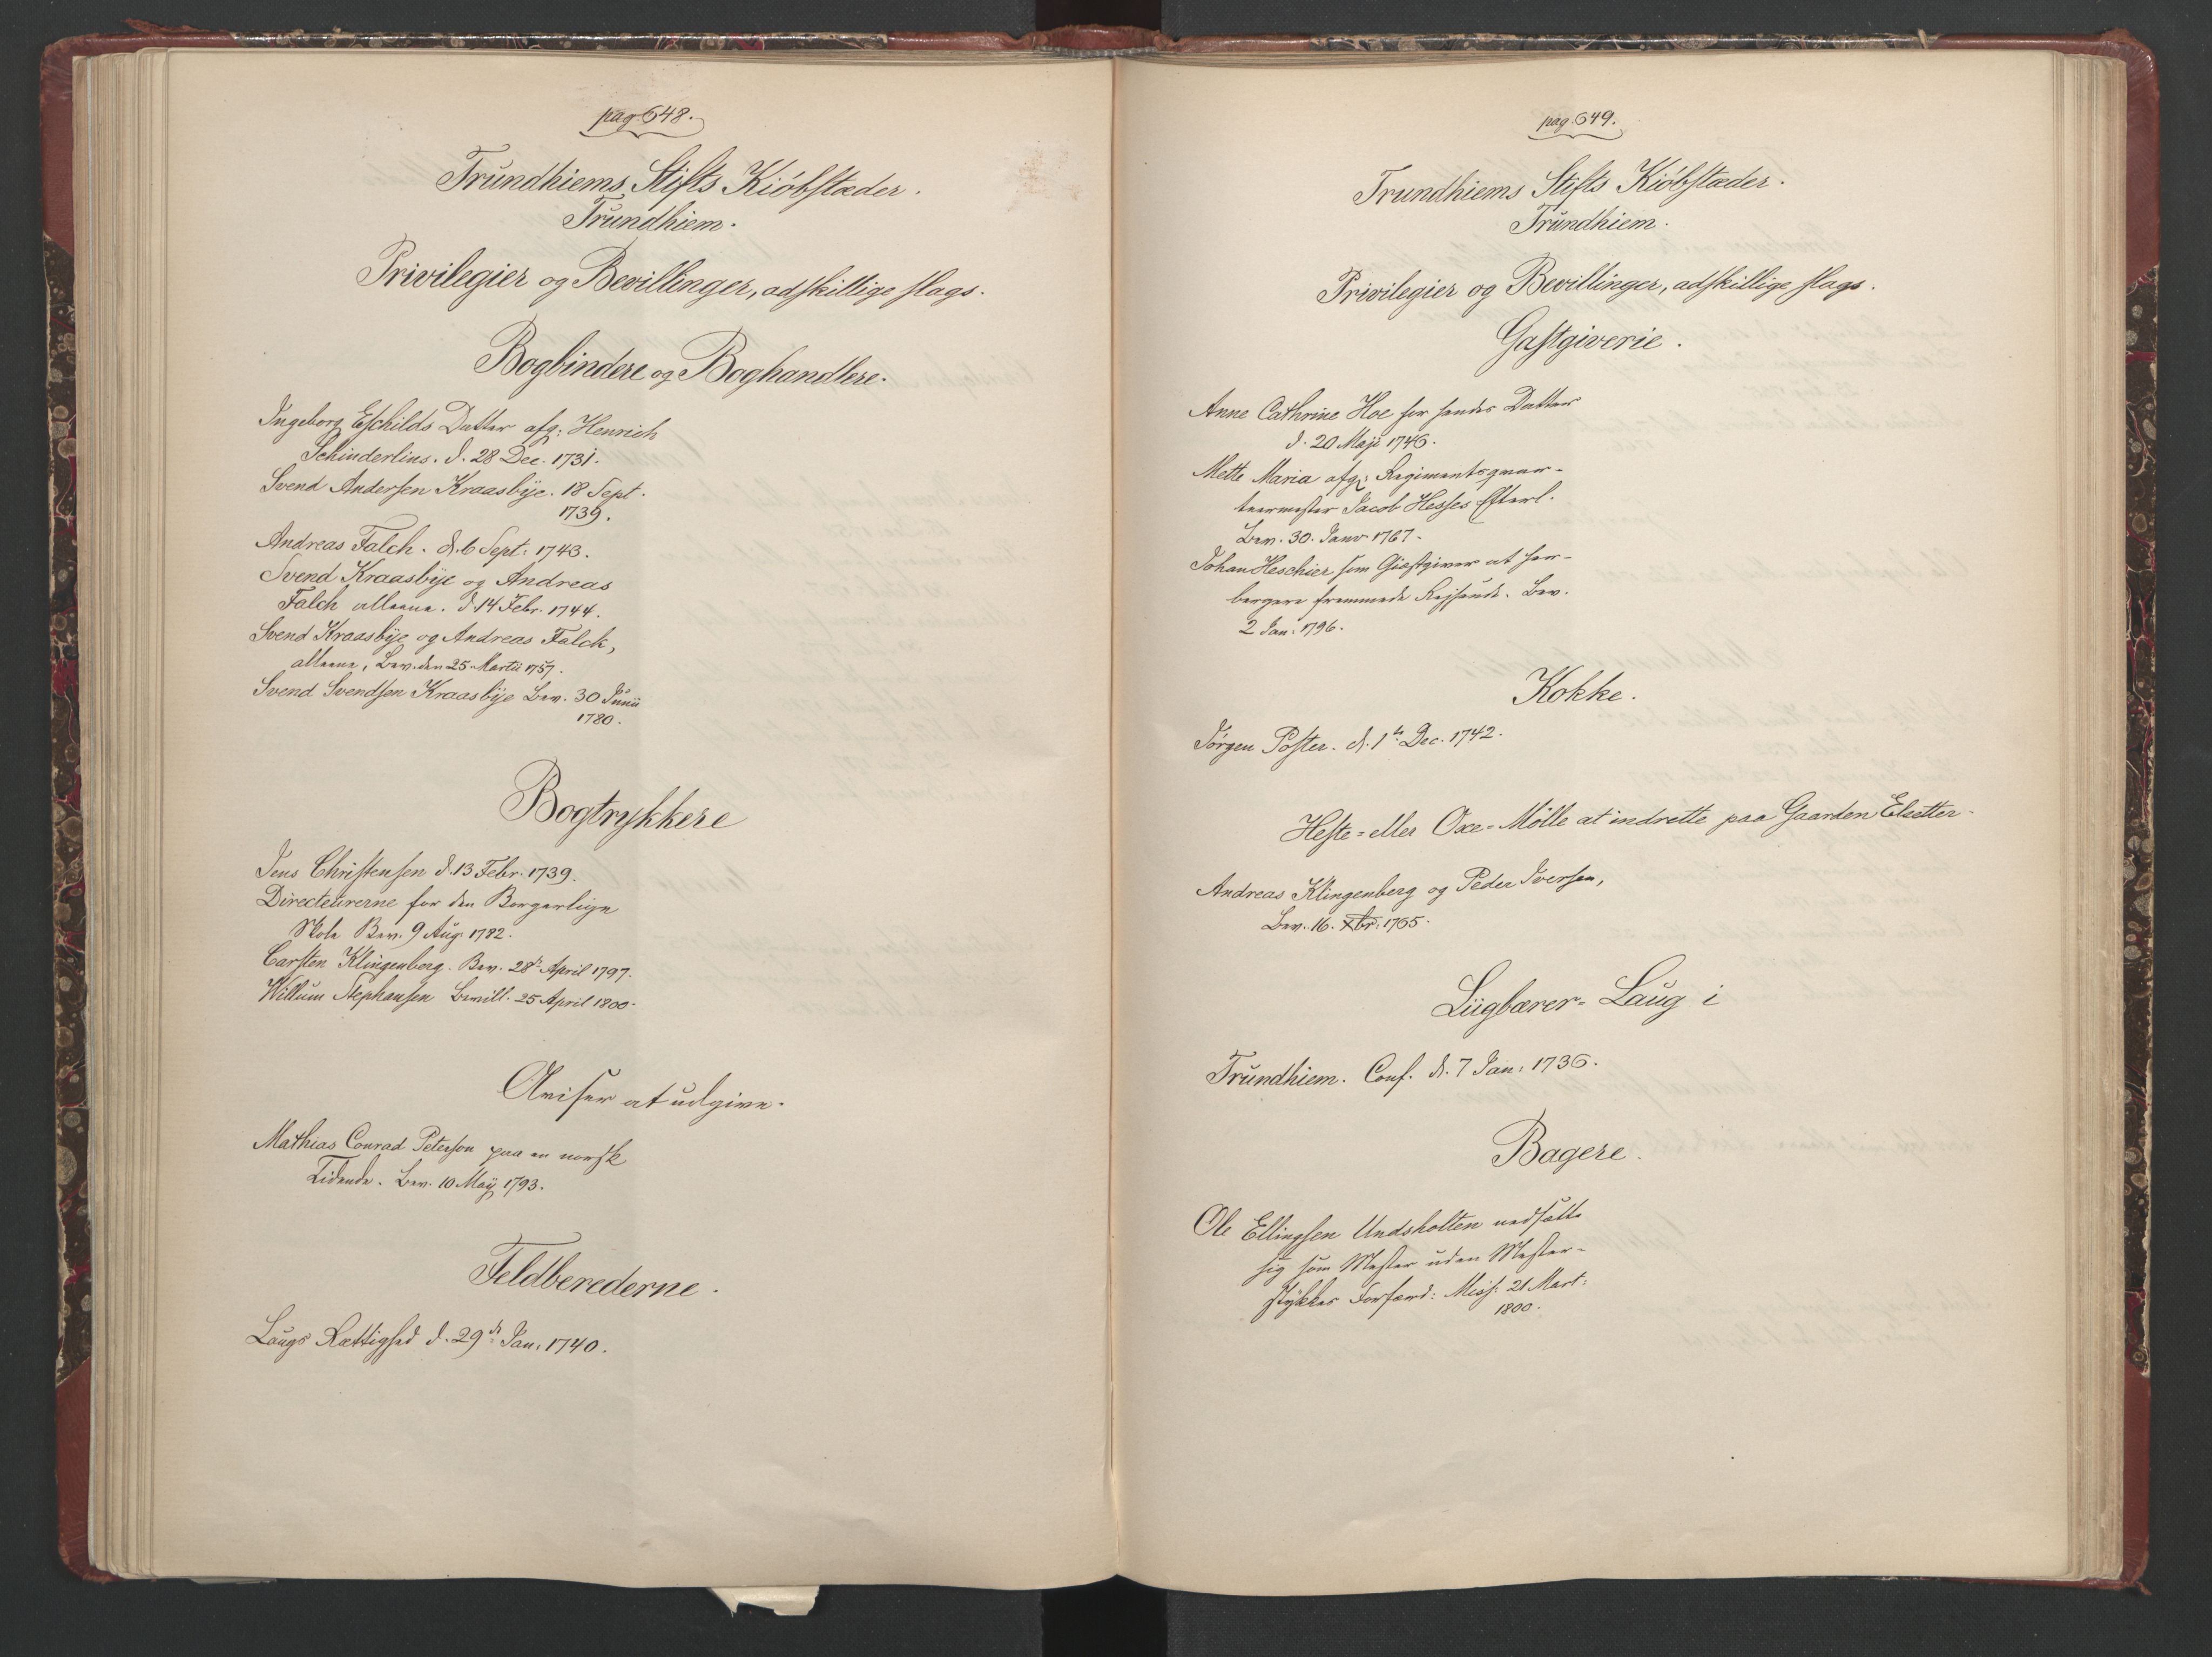 pag. 648.
Trundhiems Stifts Kiøbstæder.
Trundhiem.
Privilegier og Bevillinger, adskillige slags.
Bogbindere og Boghandlere.
Ingeborg Eschilds Datter afg: Henrich
Schinderlins. d. 28 Dec. 1731.
Svend Andersen Kraasbÿe. 18 Sept.
1739.
Andreas Falch. d. 6 Sept: 1743.
Svend Kraasbÿe og Andreas
Falch alleene. d. 14 Febr. 1744.
Svend Kraasbÿe og Andreas Falck,
alleene, Bev. den 25. Martii 1757.
Svend Svendsen Kraasbÿe Bev. 30 Junii
1780.
Bogtrykkere
Jens Christensen d. 13 Febr. 1739.
Directeurerne for den Borgerlige
Skole Bev. 9 Aug: 1782.
Carsten Klingenberg. Bev. 28de April 1797.
Willum Stephansen Bevill. 25 April 1800.
Aviser at udgive.
Mathias Conrad Peterson paa en norsk
Tidende. Bev. 10 Maÿ 1793.
Feldberederne.
Laugs Rettighed d. 29de Jan: 1740.
pag. 649.
Trundhiems Stifts Kiøbstæder.
Trundhiem.
Privilegier og Bevillinger, adskillige slags.
Gastgiverie.
Anne Cathrine Hoe for hendes Datter
d. 20 Maji 1746.
Mette Maria afg: Regimentsqvar-
teermester Jacob Hesses Efterl.
Bev. 30. Janv 1767.
Johan Heschier som Giæstgiver at her-
bergere fremmede Rejsende. Bev.
2 Jan: 1796.
Kokke.
Jørgen Poster. d. 1te Dec. 1742.
Heste- eller Oxe-Mølle at indrette paa Gaarden Elsetter.
Andreas Klingenberg og Peder Iversen,
Bev. 16. Xbr: 1765.
Liigbærer-Laug i
Trundhiem. Conf. d. 7 Jan: 1736.
Bagere.
Ole Ellingsen Undsholten nedsætte
sig som Mester uden Mester-
stÿkkes Forfærd: Miss: 21 Mart:
1800.